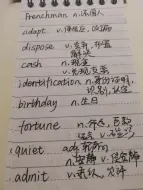 Frenchman n.法国人
adapt v.使适应,改编
dispose v.
解决
cash n.现金
v.兑现支票
identification n.身份证明,
birthday n.生日
fortune n.
quiet adj.
n.安静 v.使安静
admit v.承认,允许